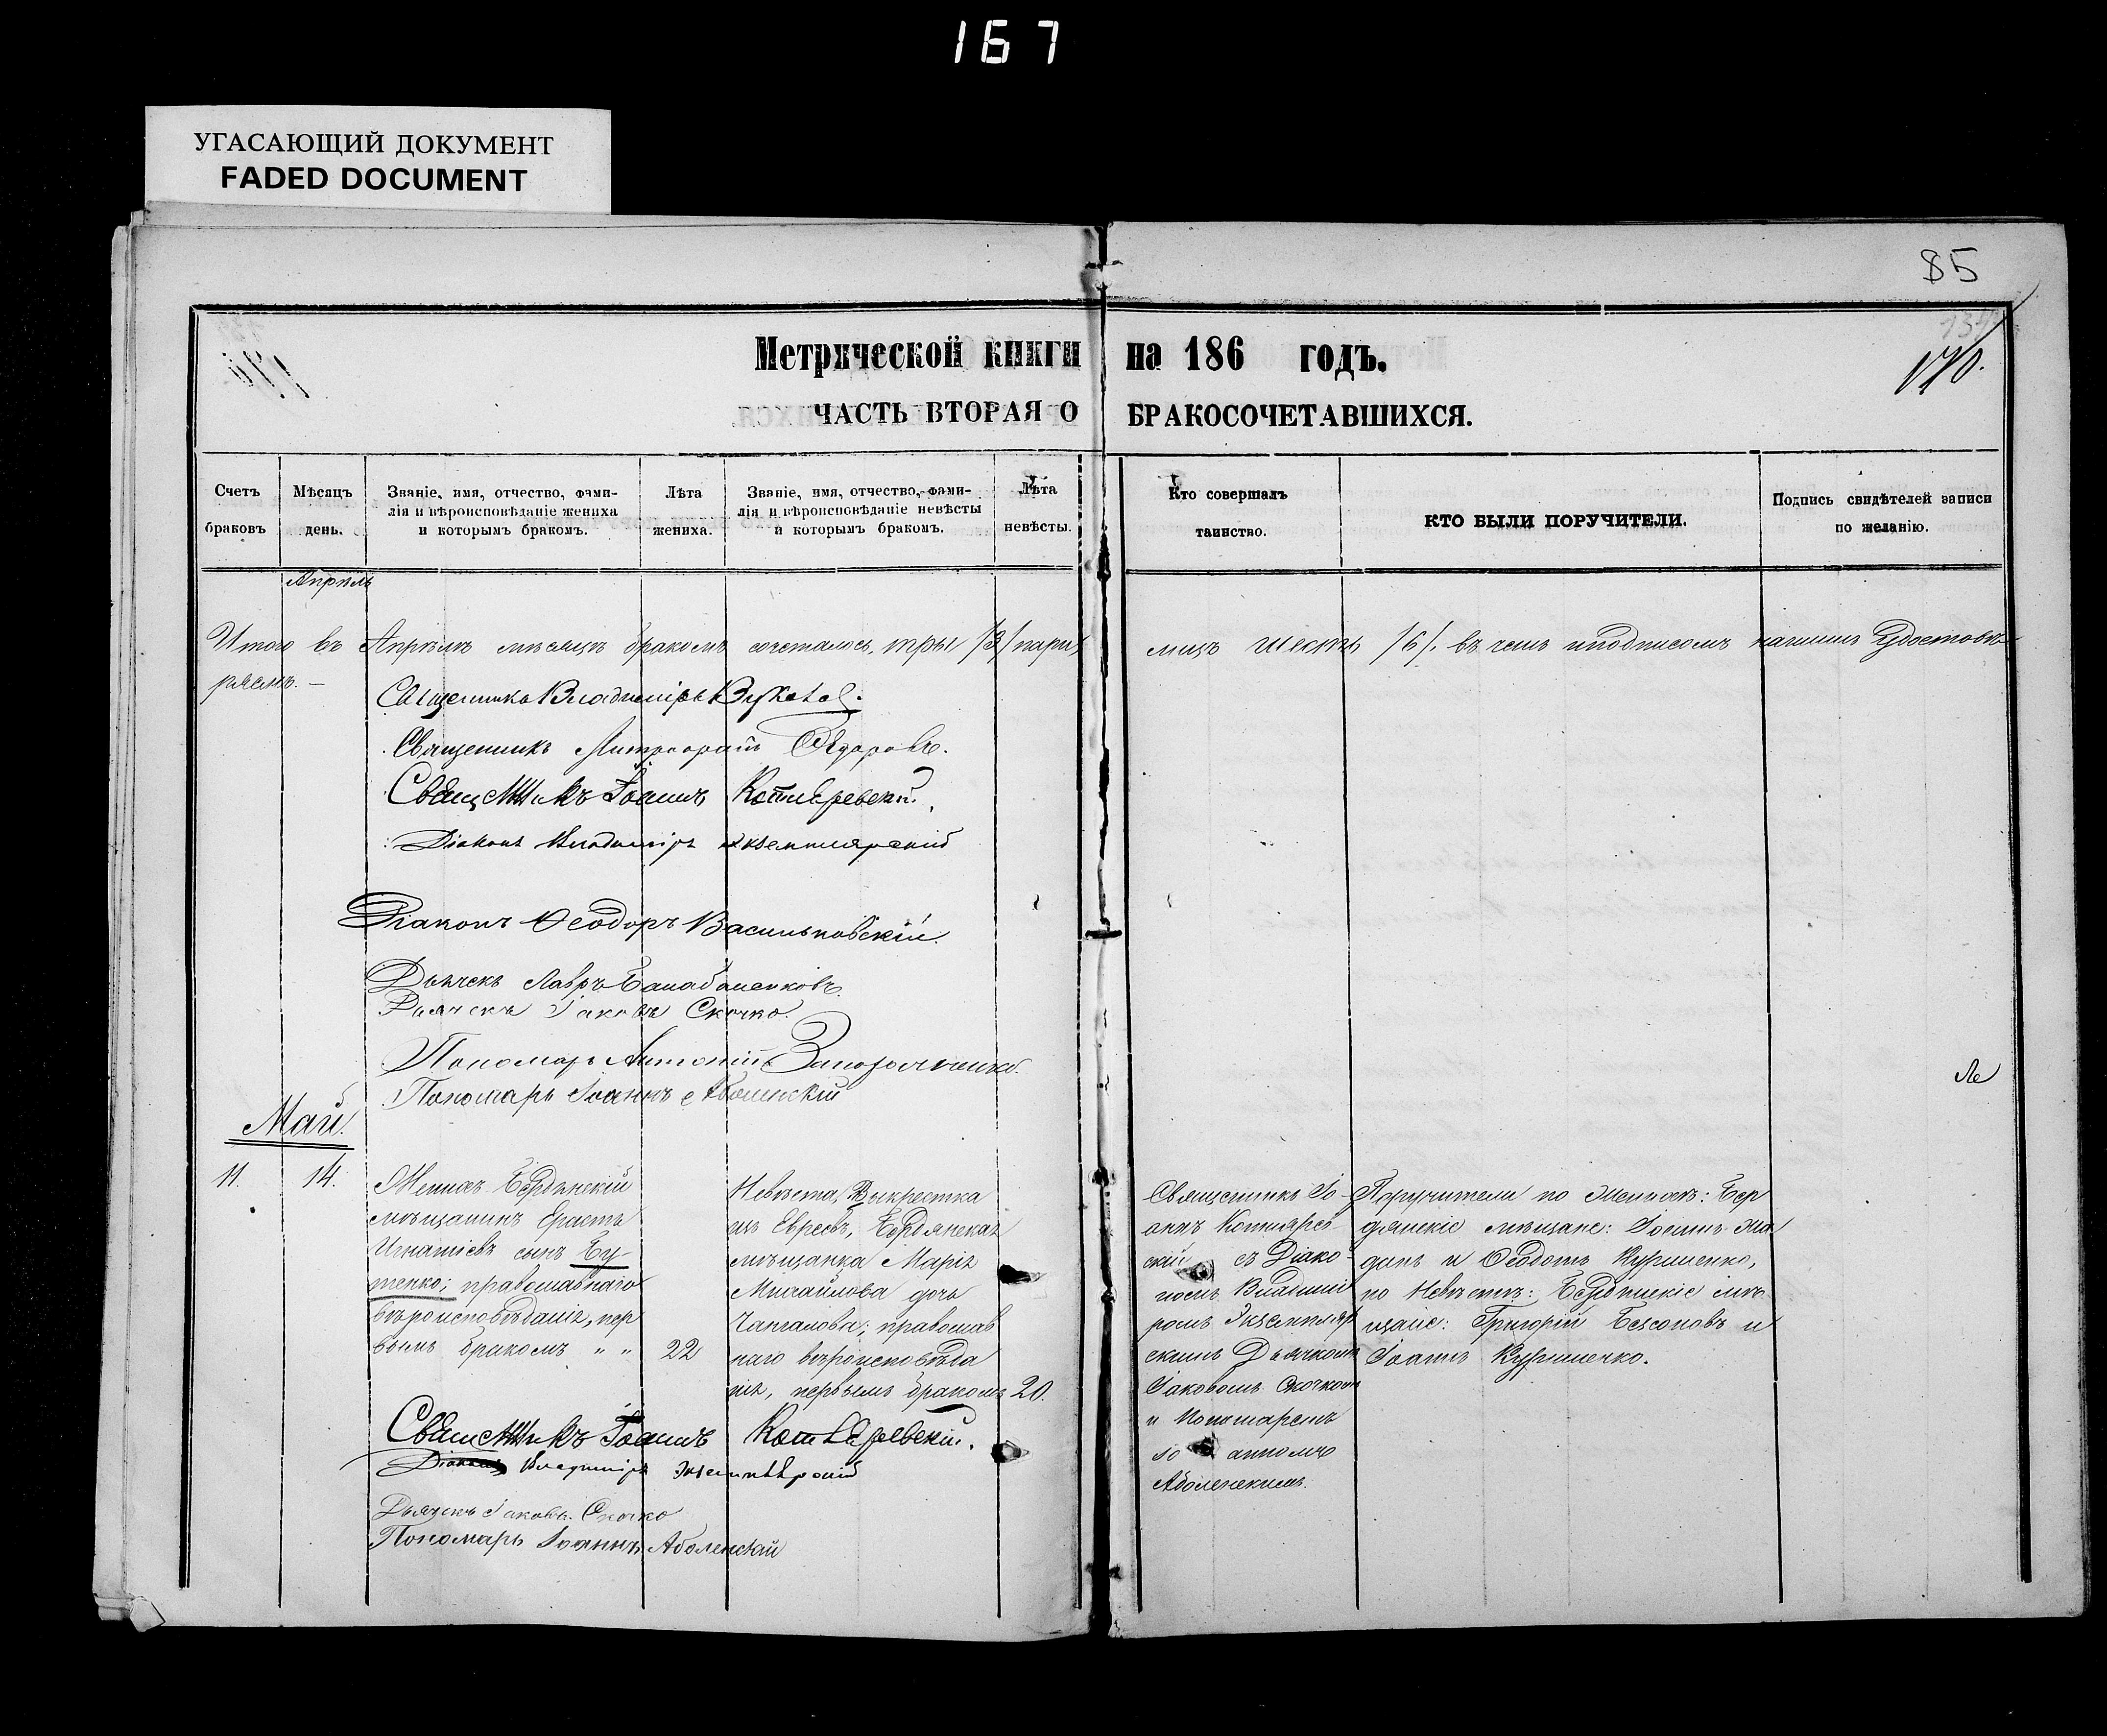 167
УГАСАЮЩИЙ ДОКУМЕНТ
FADED DOCUMENT
85
Метрической книги на 186 годъ.
170.
ЧАСТЬ ВТОРАЯ О БРАКОСОЧЕТАВШИХСЯ.
Счетъ браковъ
Мѣсяцъ день.
Званіе, имя, отчество, фами-
лія и вѣроисповѣданіе жениха
и которымъ бракомъ.
Лѣта жениха.
Званіе, имя, отчество, фами-
лія и вѣроисповѣданіе невѣсты
и которымъ бракомъ.
Лѣта невѣсты.
Кто совершалъ
таинство.
КТО БЫЛИ ПОРУЧИТЕЛИ.
Подпись свидѣтелей записи
по желанію.
Апрѣль
Итого въ Апрѣлѣ мѣсяцѣ бракомъ сочеталось три /3/ пары,
лицъ шесть /6/. въ чемъ и подписомъ нашимъ Удостовѣ-
ряемъ. —
Священникъ Владиміръ
Священникъ Митрофанъ Ѳедоровъ.
Священникъ Іоаннъ Котляревскій.
Діаконъ Владиміръ Экземплярскій
Діаконъ Ѳеодоръ Васильковскій.
Дьячекъ Лавръ Балабаненковъ.
Дьячекъ Іаковъ Скочко.
Пономарь Антоній
Пономарь Іоаннъ Аболенскій
Май.
11.
14.
Женихъ Бердянскій
мѣщанинъ Ерастъ
Игнатіевъ сынъ Бу-
тенко; православнаго
вѣроисповѣданія, пер
вымъ бракомъ " "
22
Невѣста, Выкрестка
изъ Евреевъ, Бердянская
мѣщанка Марія
Михайлова дочь
православ
наго вѣроисповѣда
нія, первымъ бракомъ
20.
Священникъ Іо-
аннъ Котлярев
скій съ Діако-
номъ Владимі
ромъ Экземпляр
скимъ Дьячкомъ
Іаковомъ Скочкомъ
и Пономаремъ
Іо анномъ
Аболенскимъ.
Поручители по Женихѣ: Бер
дянскіе мѣщане: Іоаннъ Жа
данъ и Ѳеодотъ Куриленко,
по Невѣстѣ: Бердянскіе мѣ
щане: Григорій Безсоновъ и
Іоаннъ Куриленко.
Священникъ Іоаннъ Котляревскій.
Діаконъ Владиміръ Экземплярскій
Дьячекъ Іаковъ Скочко
Пономарь Іоаннъ Аболенскій